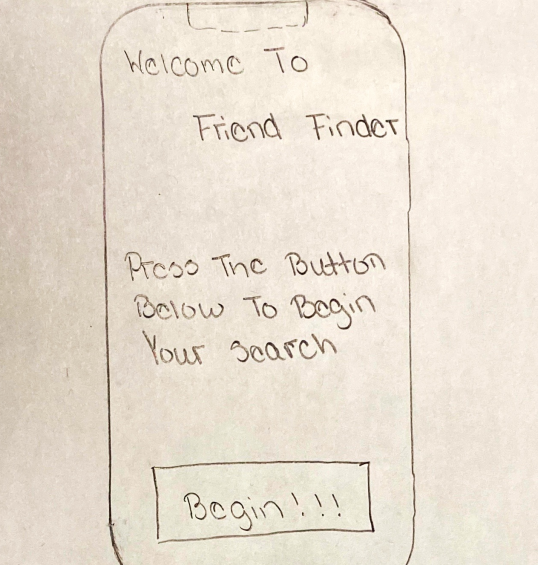 Welcome To
Friend Finder
Press The Button
Below To Begin
Your search
Begin!!!